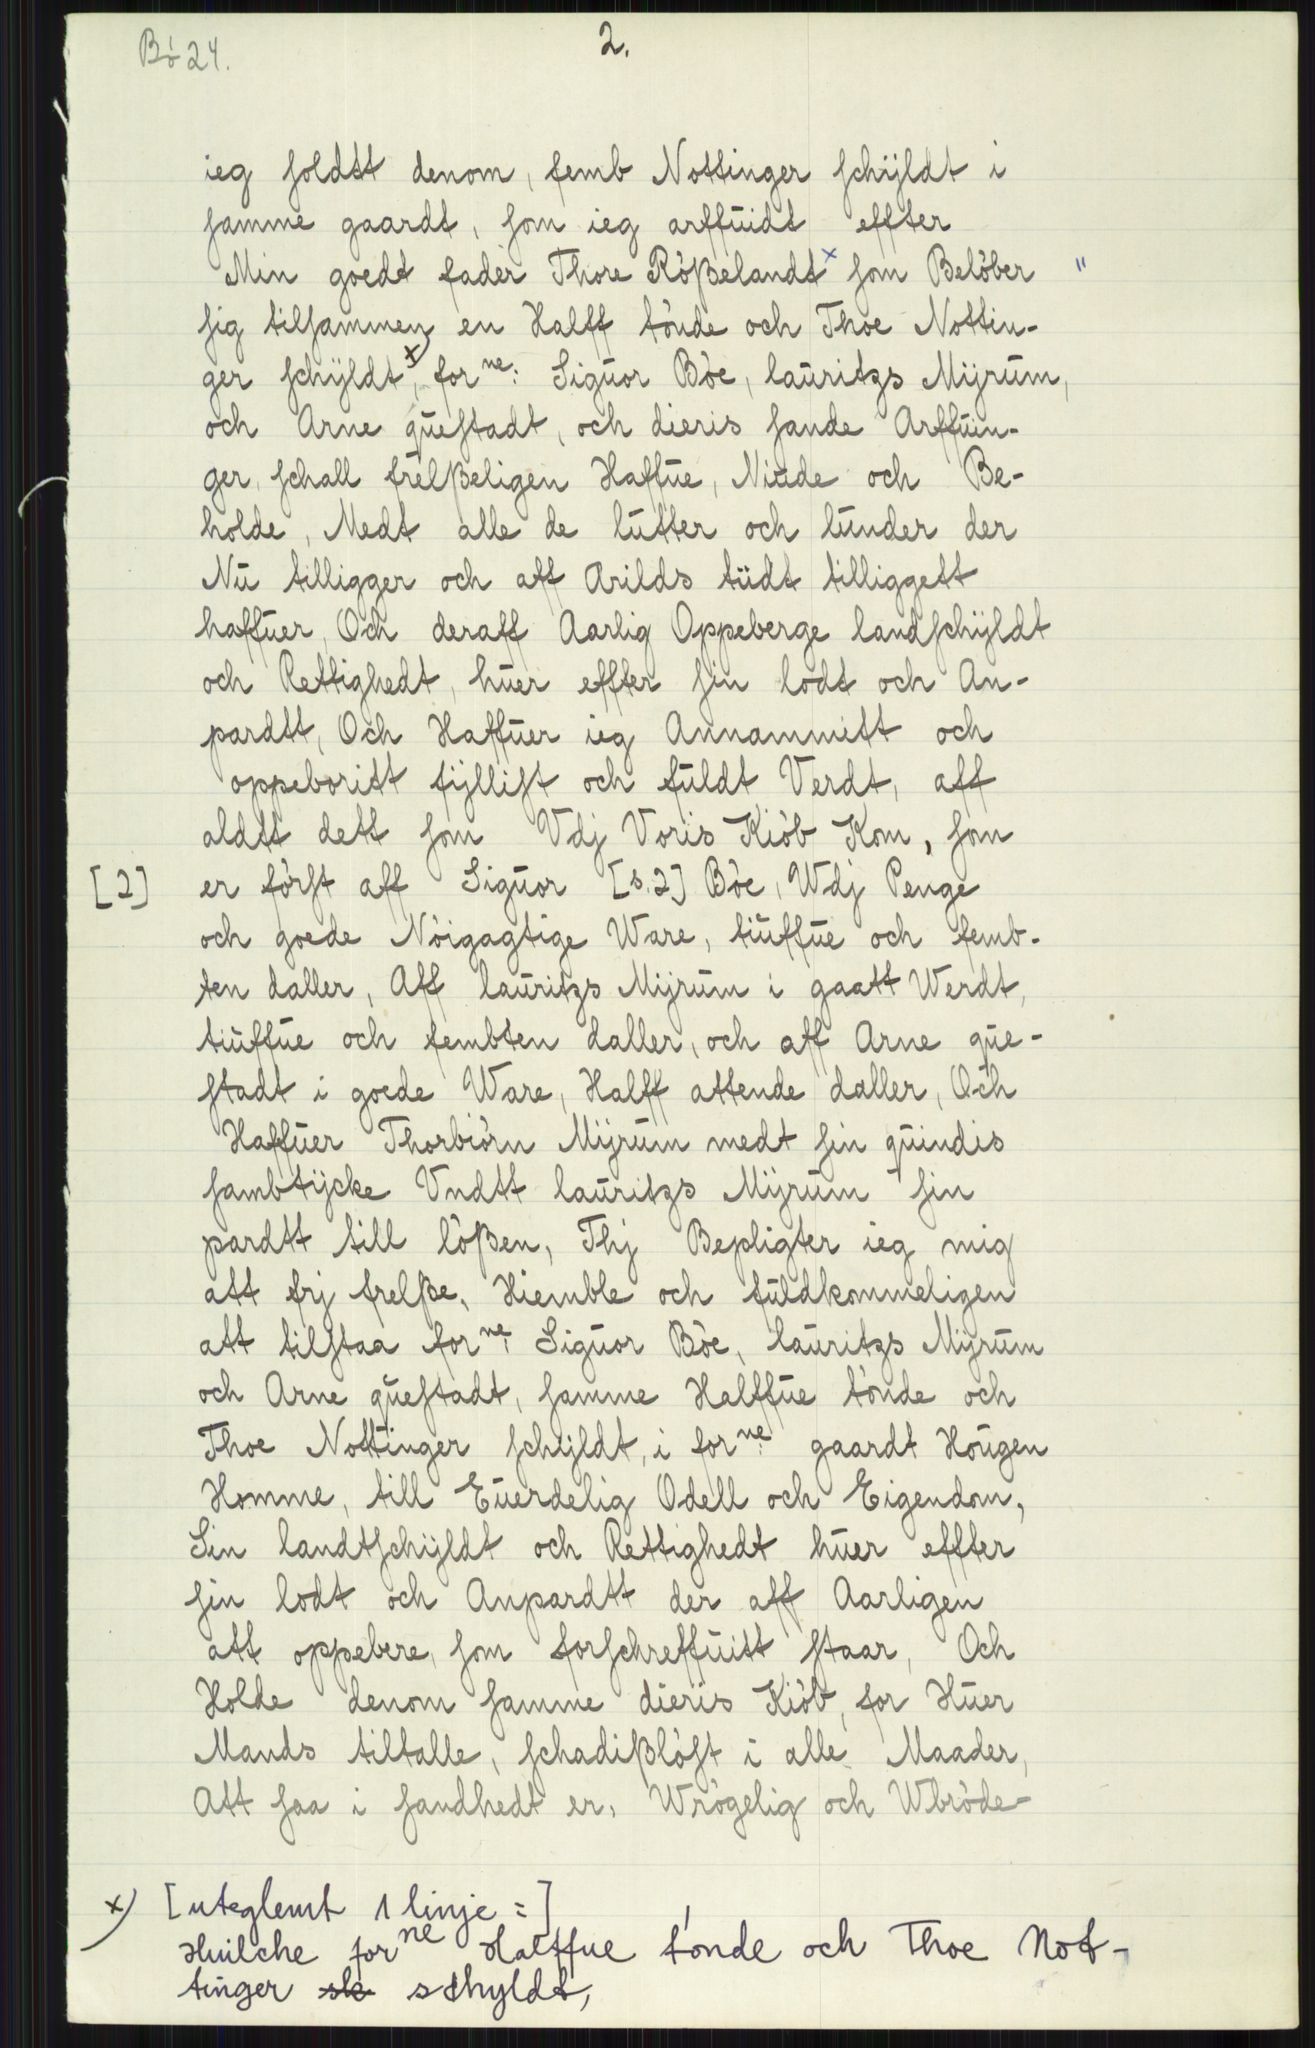 Bø 24.
2.
ieg soldtt denom, femb Nottinger schÿldt i
samme gaardt, som ieg arffuidt effter
Min goedt fader Thore Rößelandt x som Belöber "
sig tilsammen en Halff tönde och Thoe Nottin-
ger schÿldt x), for ne: Siguor Böe, lauritzs Mÿrum,
och Arne questadt, och dieris sande Arffuin-
ger, schall frelßeligen Haffue, Niude och Be-
holde, Medt alle de lutter och lunder der
Nu tilligger och aff Arilds tiidt tilliggett
haffuer, Och deraff Aarlig Oppeberge landschÿldt
och Rettighedt, huer effter sin lodt och An-
pardtt, Och Haffuer ieg Annammett och
oppeboritt fÿllist och fuldt Verdt, aff
aldtt dett som Vdj Voris Kiöb Kom, som
[2] er först aff Siguor [s.2] Böe, Wdj Penge
och goede Nöigagtige Ware, tiuffue och femb-
ten daller, Aff lauritzs Mÿrum i gaatt Werdt,
tiuffue och fembten daller, och aff Arne que-
stadt i goede Ware, Halff attende daller, Och
Haffuer Thorbiörn Mÿrum medt sin quindis
sambtÿcke Vndtt lauritzs Mÿrum sin
pardtt till lößen, Thj Bepligter ieg mig
att frj frelße, Hiemble och fuldkommeligen
att tilstaa for ne: Siguor Böe, lauritzs Mÿrum
och Arne questadt, samme Halffue tönde och
Thoe Nottinger schÿldt, i for ne: gaardt Hougen
Homme, till Euerdelig Odell och Eigendom,
Sin landtschÿldt och Rettighedt huer effter
sin lodt och Anpardtt der aff Aarligen
att oppebere, som forschreffuitt staar, Och
Holde denom samme dieris Kiöb, for Huer
Mands tiltalle, schadißlöst i alle Maader,
Att saa i sandhedt er, Wrögelig och Wbröde-
x) [uteglemt 1 linje =]
Huilche for ne Halffue tönde och Thoe Not-
tinger sk schyldt,